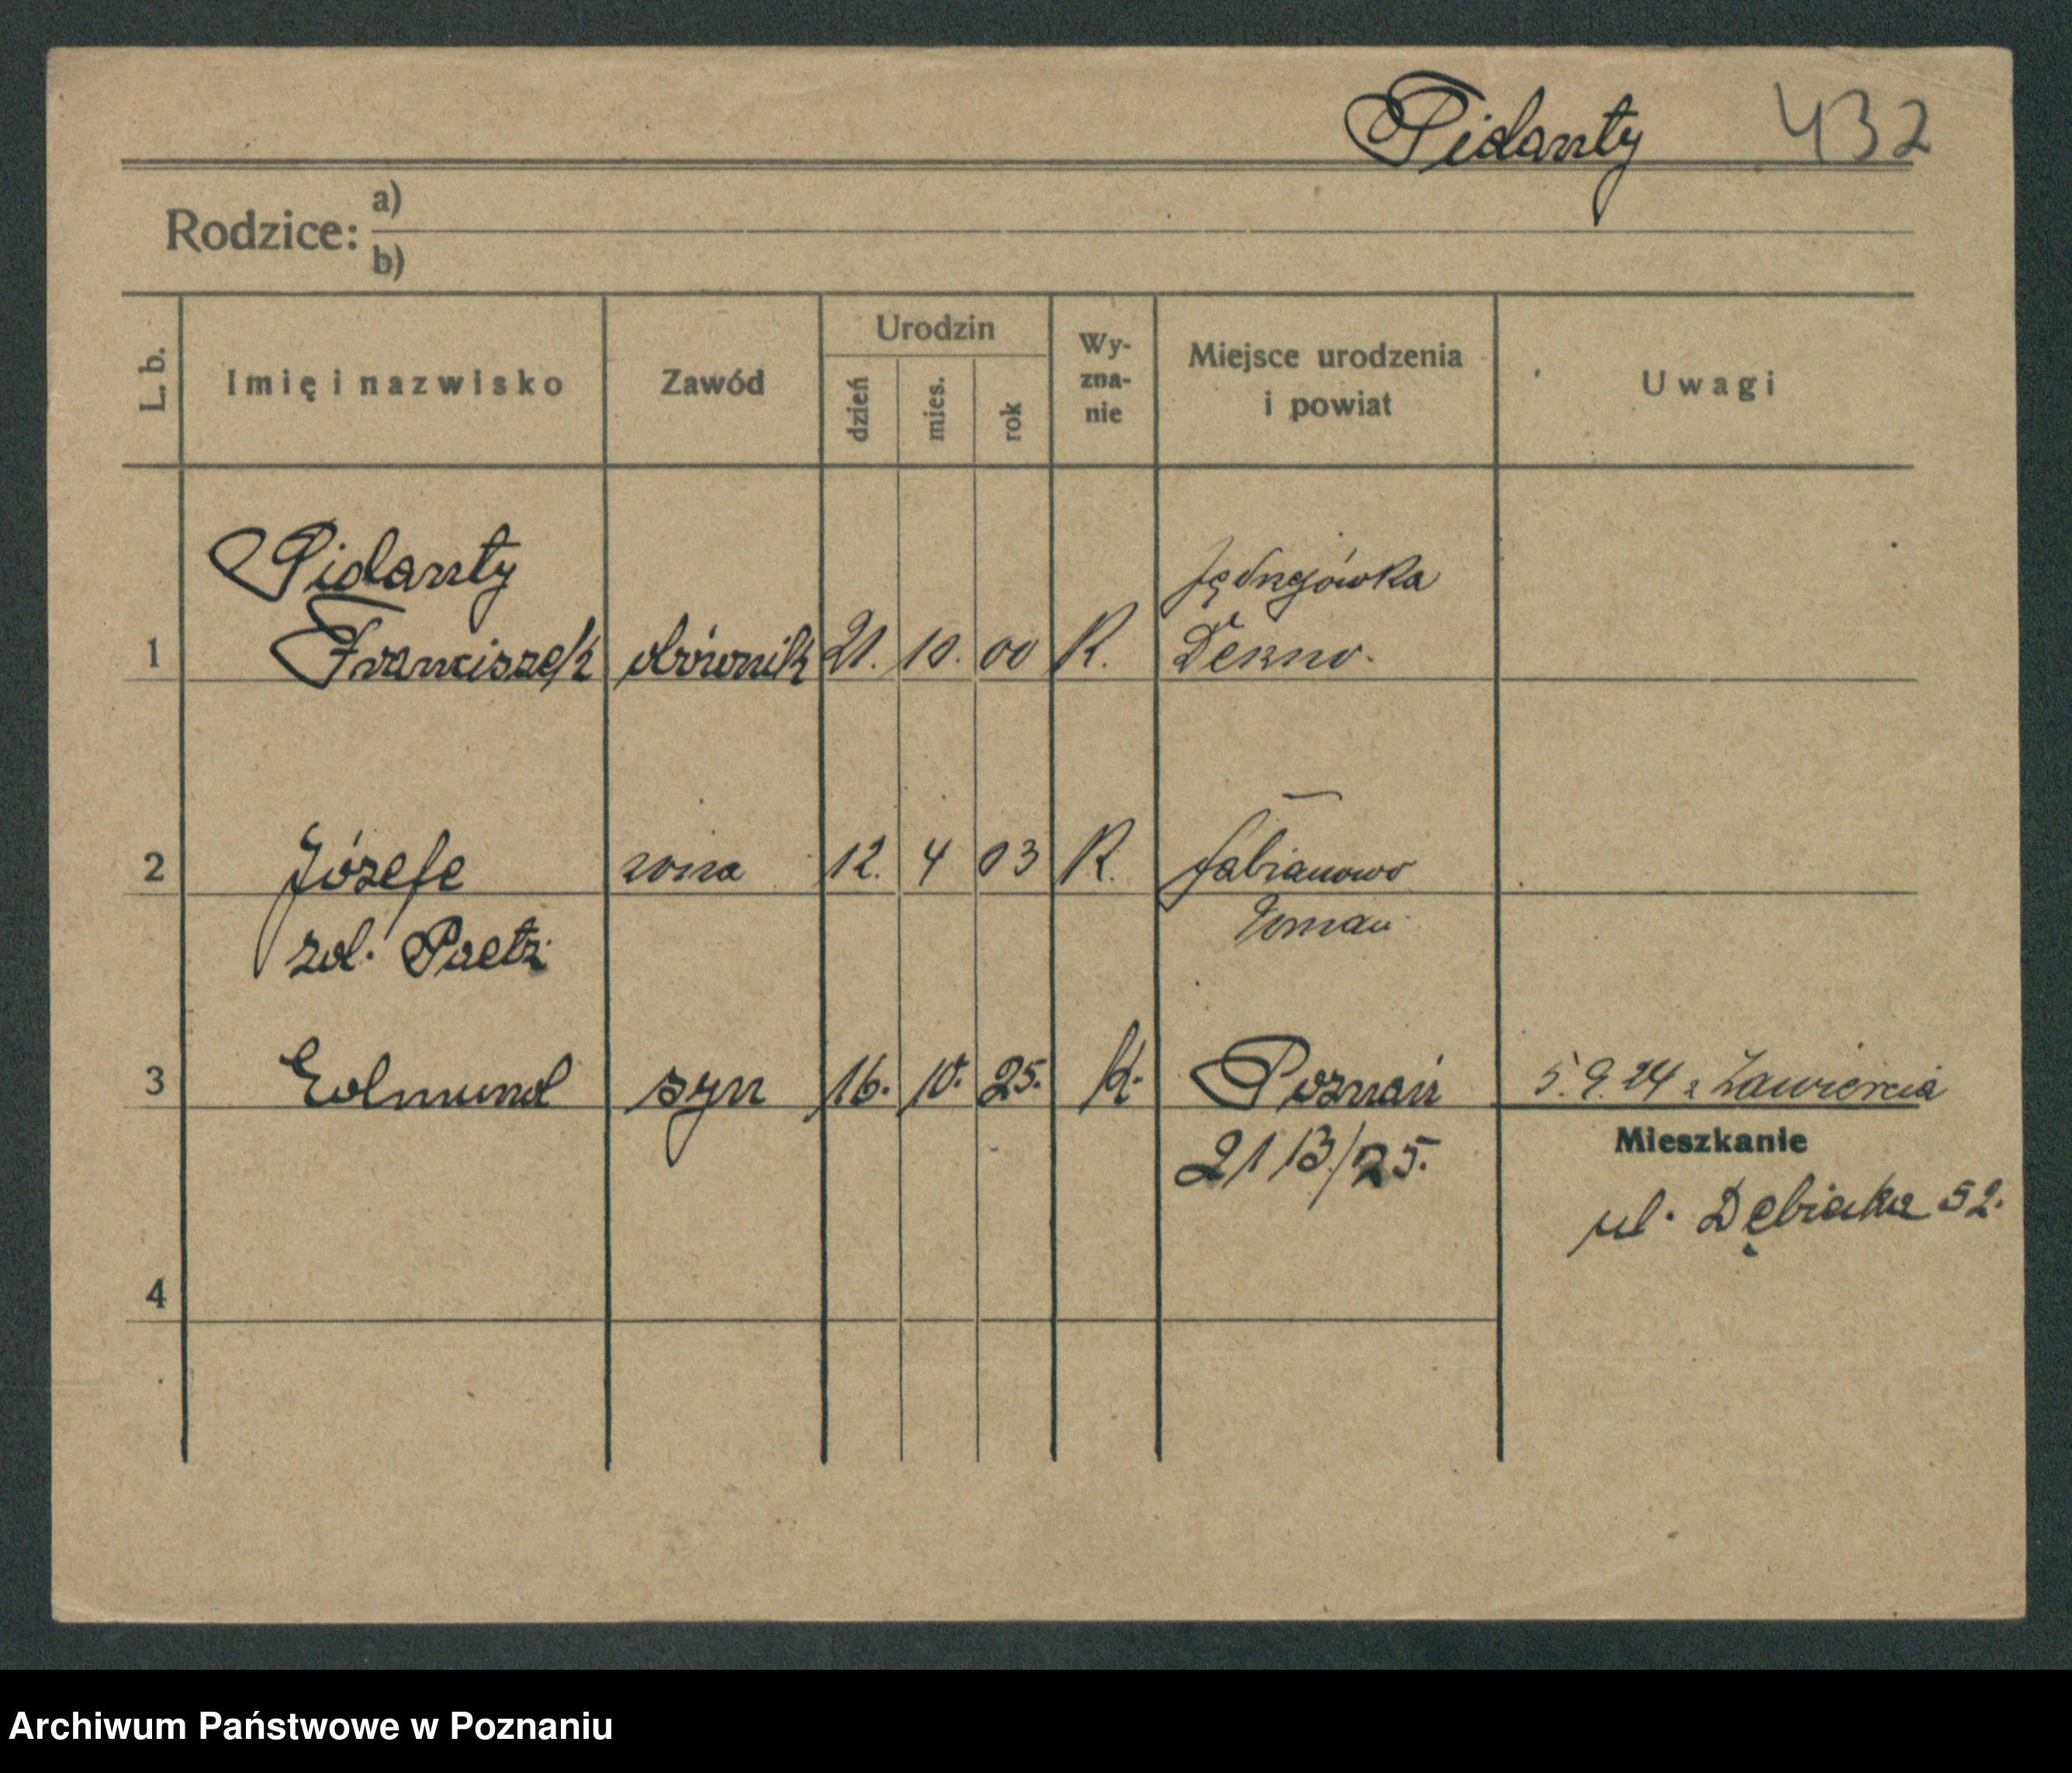 Pidanty 432
Rodzice: a)
b)
L. b. Imię i nazwisko Zawód Urodzin dzień mies. rok Wy-zna-nie Miejsce urodzenia i powiat Uwagi
Pidanty
1 Franciszek 21. 10. 00 R.
2 Józefe 12. 4 03 R. Fabianowo
zol. Paetz
3 Edmund syn 16. 10. 25. K. Poznań 5.9.24 z Zawiercia
21 13/25. Mieszkanie
ul. 52.
4
Archiwum Państwowe w Poznaniu